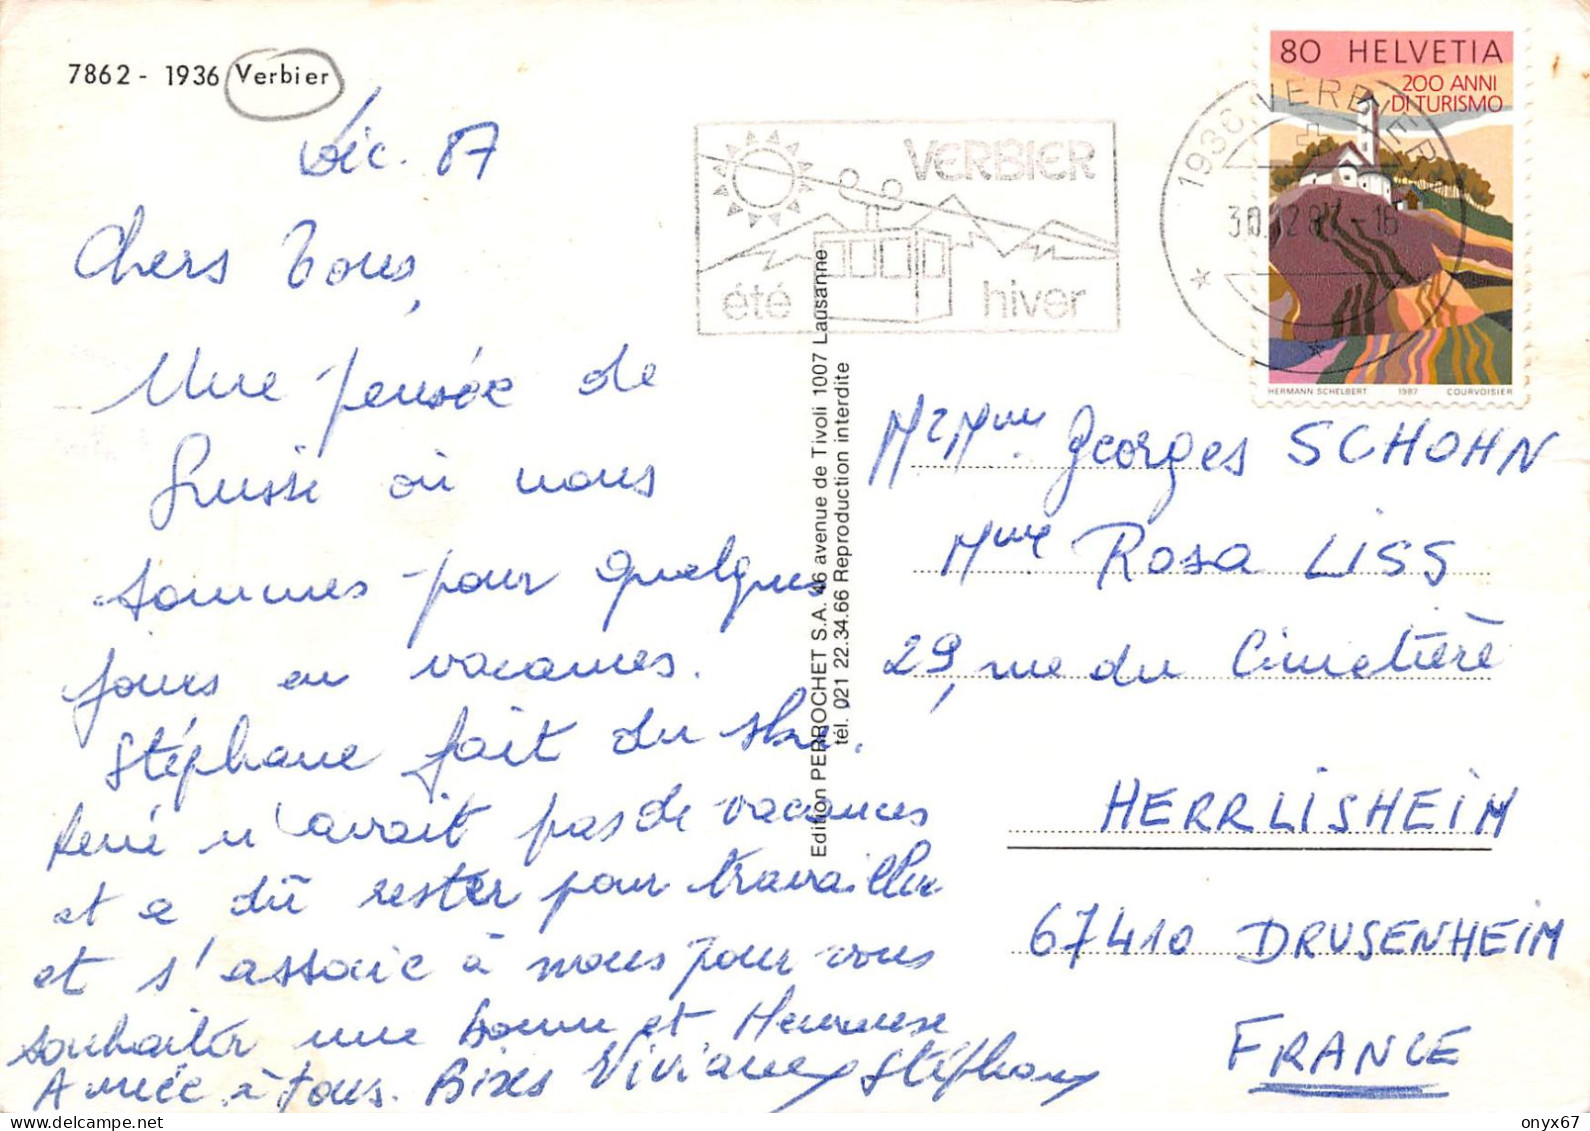 7862 - 1936 Verbier
Déc. 87
Chers Tous,
Une pensée de
Suisse où nous
sommes pour quelques
jours en vacances.
Stéphane fait du ski.
René n'avait pas de vacances
et a dû rester pour travailler
et s'associe à nous pour vous
souhaiter une bonne et Heureuse
Année à tous. Bises Viviane Stéphane
Edition PERROCHET S.A. 46 avenue de Tivoli 1007 Lausanne
tél. 021 22.34.66 Reproduction interdite
VERBIER
été hiver
1936 VERBIER
30.12.87.-16
80 HELVETIA
200 ANNI
DI TURISMO
HERMANN SCHELBERT 1987 COURVOISIER
Mr Mme Georges SCHOHN
Mme Rosa LISS
29, rue du Cimetière
HERRLISHEIM
67410 DRUSENHEIM
FRANCE
onyx67